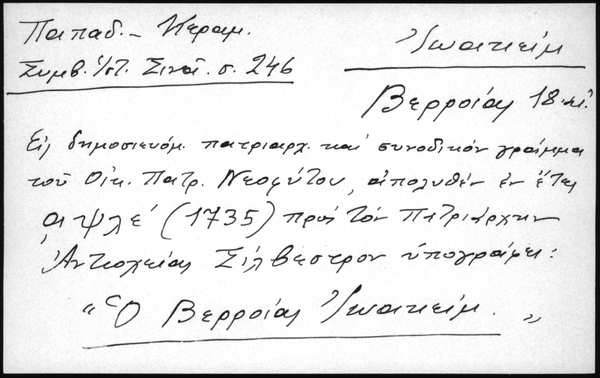 Παπαδ. – Κεραμ.
Συμβ. Ἱστ. Σινᾶ. σ. 246
Ἰωακεὶμ
Βερροίας 18.αἰ.
Εἰς δημοσιευόμ. πατριαρχ. καὶ συνοδικὸν γράμμα
τοῦ Οἰκ. Πατρ. Νεοφύτου, ἀπολυθὲν ἐν ἔτει
͵αψλέ (1735) πρὸς τὸν Πατριάρχην
Ἀντιοχείας Σίλβεστρον ὑπογράφει:
"Ὁ Βερροίας Ἰωακεὶμ. "